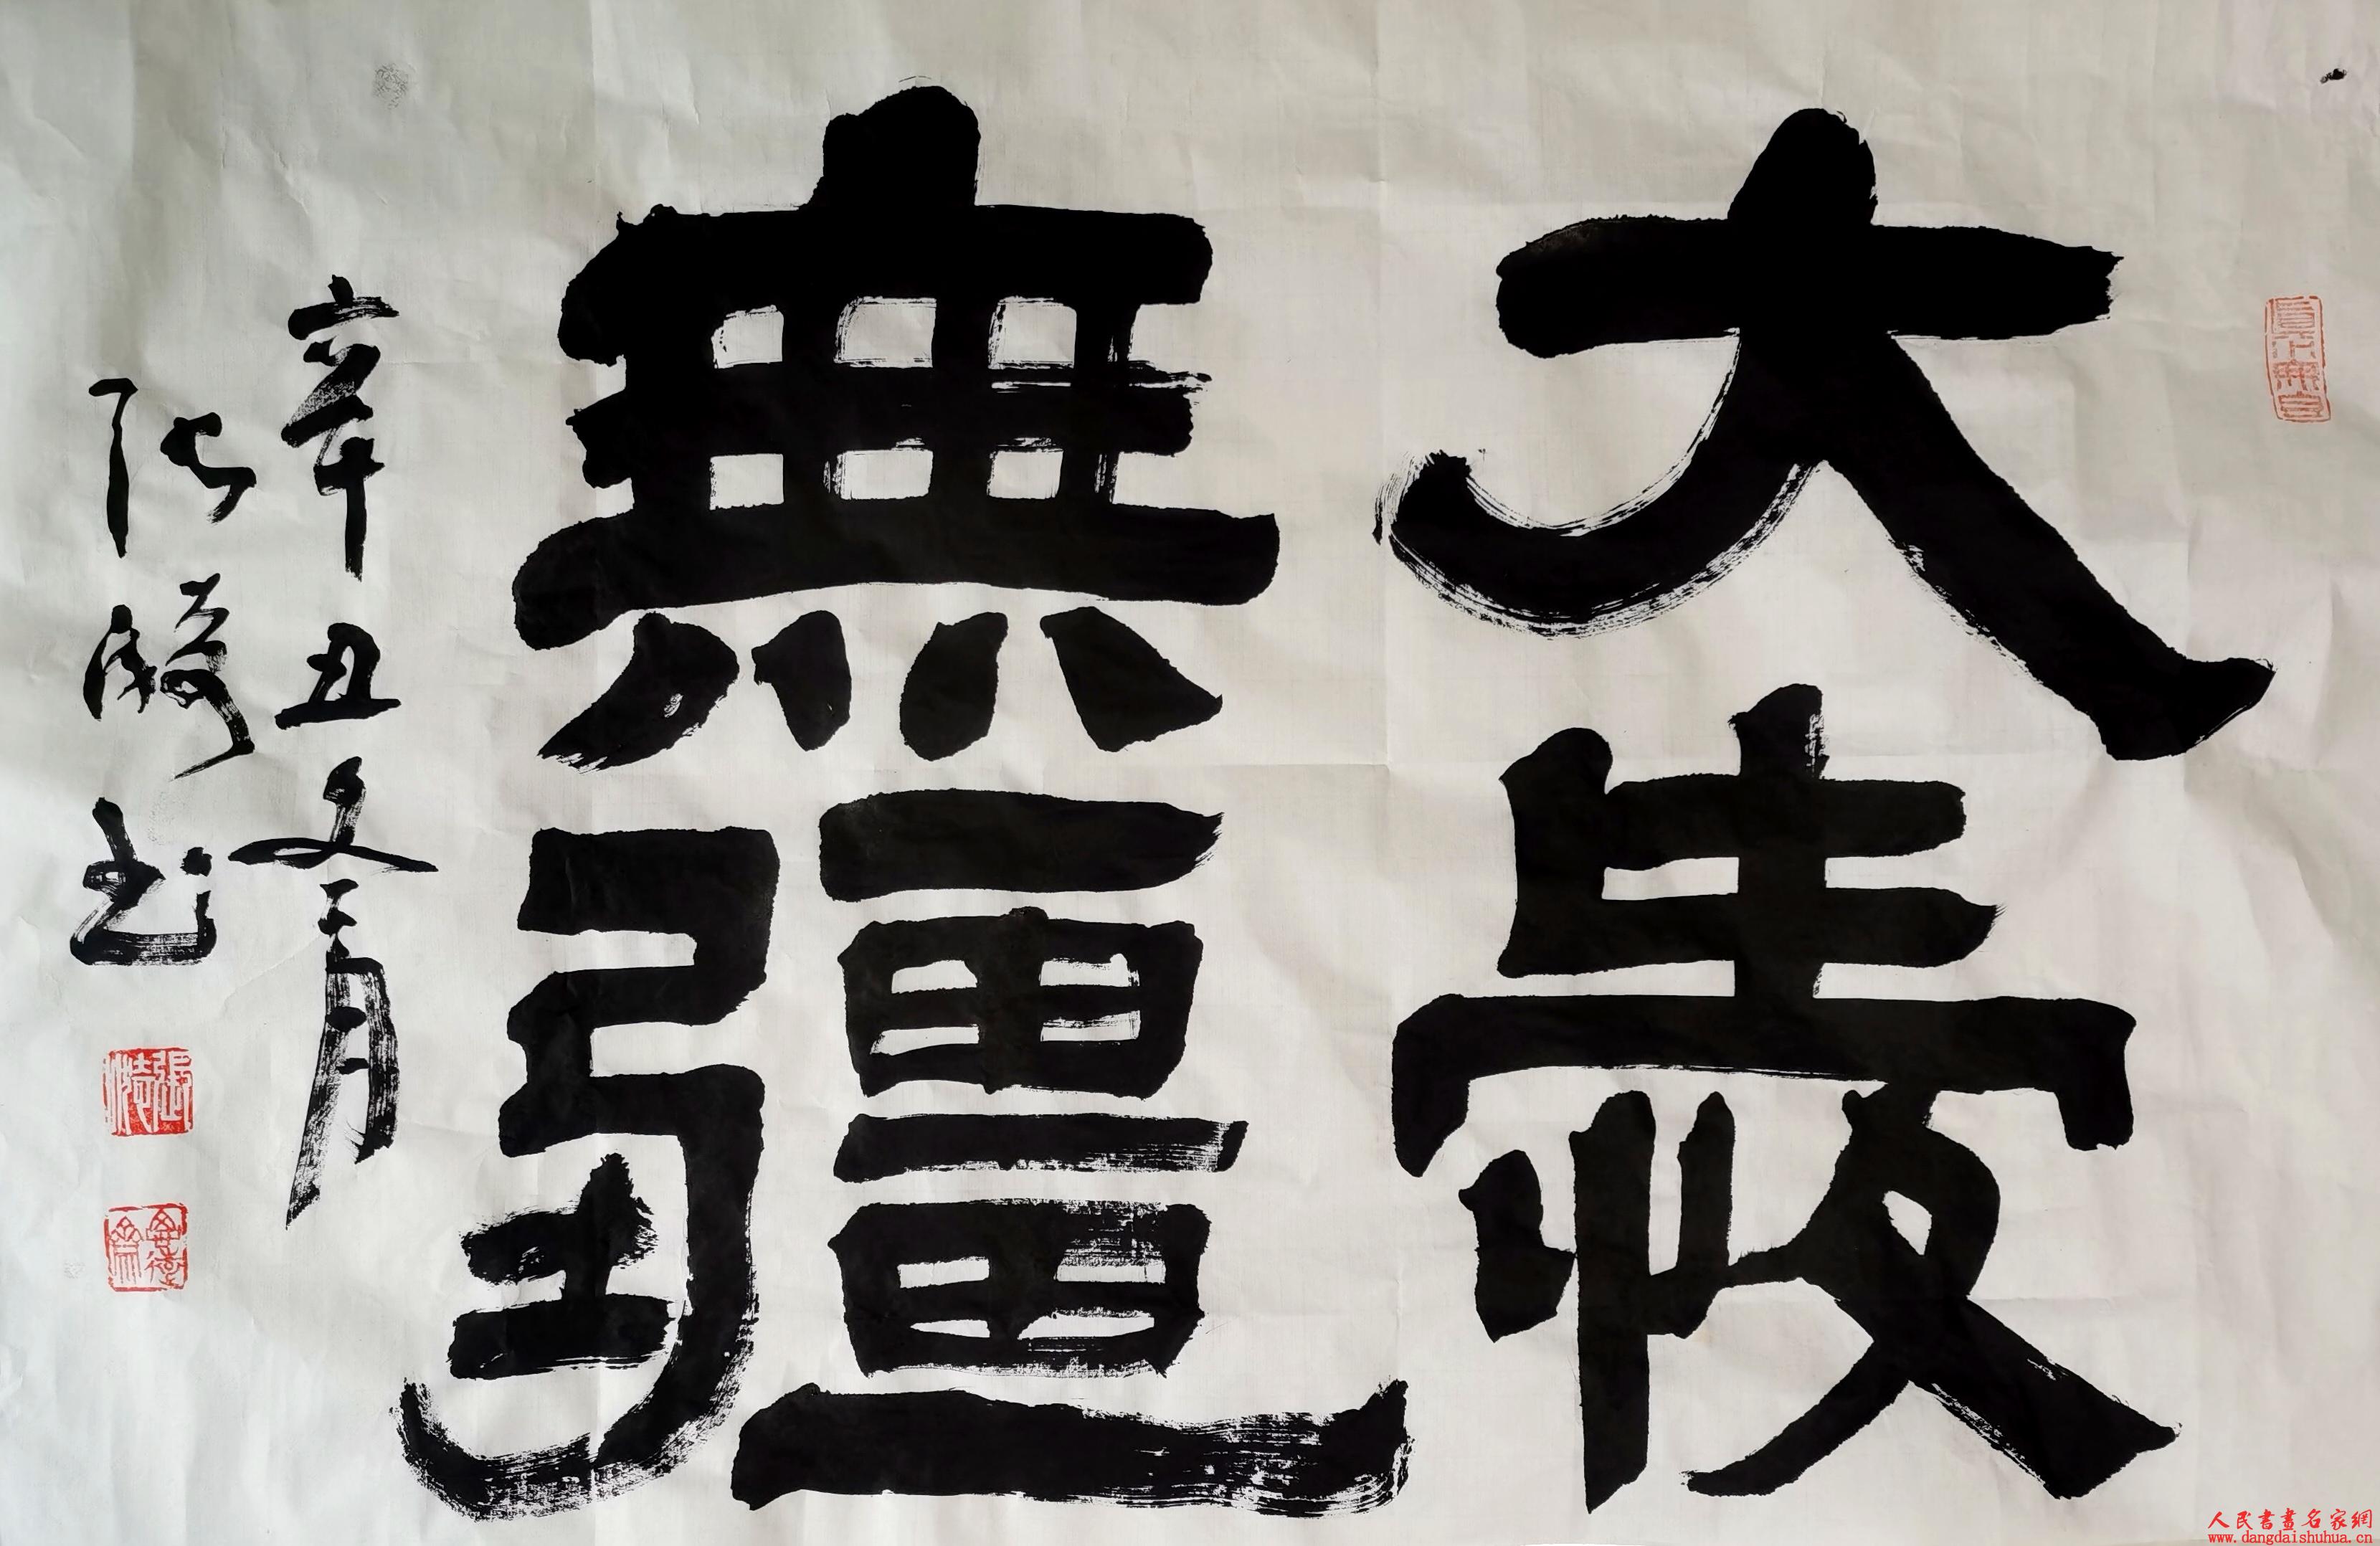 大愛
無疆
辛丑冬月
张书
人民書畫名家網
www.dangdaishuhua.cn